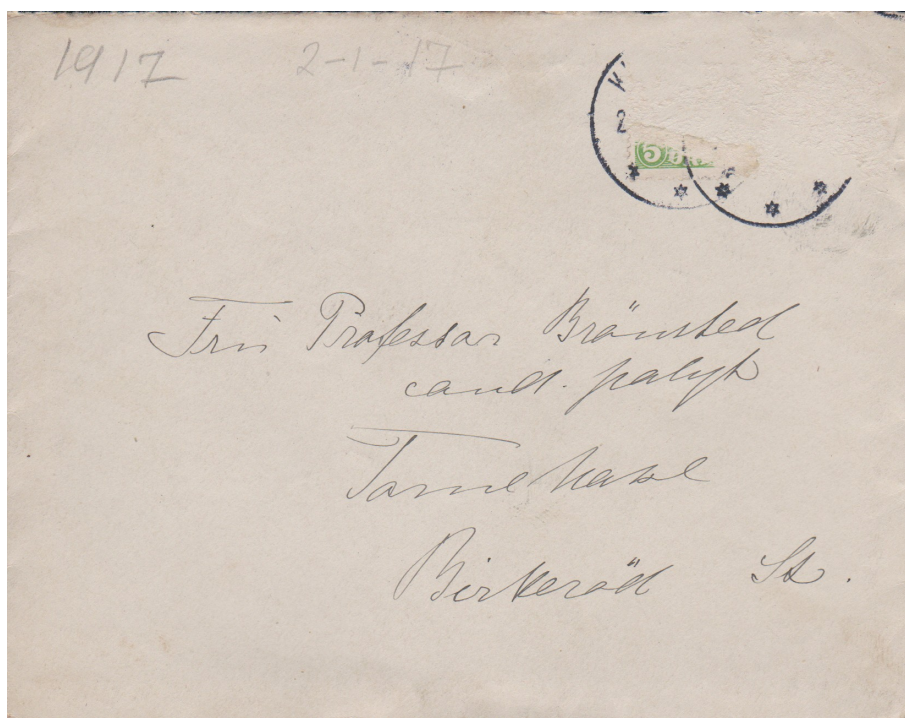 1917 2-1-17
K
2
5
Fru Professor Brönsted
cand. polyt
Tornehave
Birkeröd St.